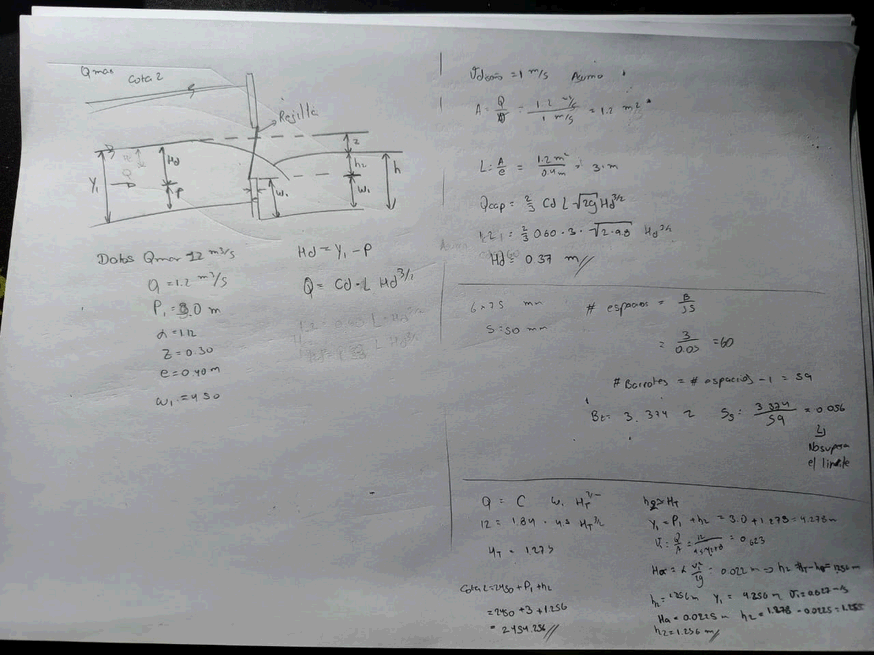 Qmax Cota 2
Rejilla
Hd
z
h2
h
Y1
P
w1
w1
Datos Qmax 12 m³/s
Q = 1.2 m³/s
P1 = 3.0 m
α = 1.12
z = 0.30
e = 0.40 m
w1 = 4.50
Hd = Y1 - P
Q = Cd · L Hd^3/2
Vdiseño = 1 m/s Asumo
A = Q/V = 1.2 m³/s / 1 m/s = 1.2 m²
L = A/e = 1.2 m² / 0.4 m = 3 m
Qcap = 2/3 Cd L √2g Hd^3/2
1.2 = 2/3 0.60 · 3 · √2·9.8 Hd^3/2
Hd = 0.37 m//
6 x 25 mm
S = 50 mm
# espacios = B/S
= 3/0.05 = 60
# Barrotes = # espacios - 1 = 59
Bt = 3.374
Ss = 3.374/59 = 0.056
No supera
el limite
Q = C w1 HT^3/2
12 = 1.84 · 4.5 HT^3/2
HT = 1.278
Cota 2 = 2450 + P1 + h2
= 2450 + 3 + 1.256
= 2454.256//
h2 ≈ HT
Y1 = P1 + h2 = 3.0 + 1.278 = 4.278 m
= 0.623
= 0.022 m
h2 = 1.256 m Y1 = 4.256 m
Ha = 0.0225 m h2 = 1.278 - 0.0225 = 1.255
h2 = 1.256 m//